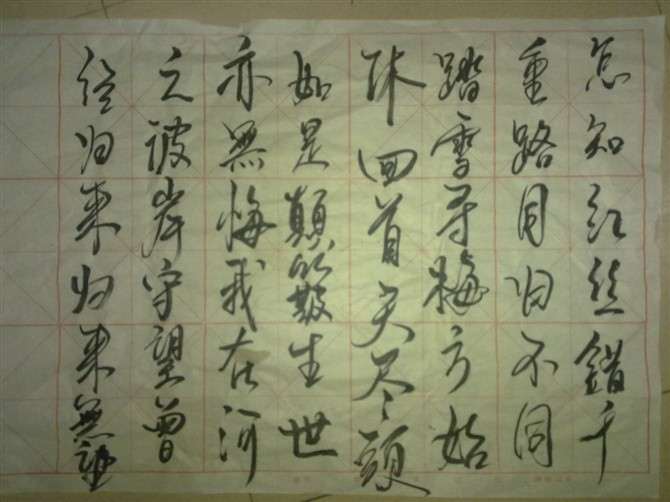 怎知红丝错千
重路同归不同
踏雪寻梅方始
休回首天尽头
如是顛簸生世
亦無悔我在河
之彼岸守望曾
经归来归来無